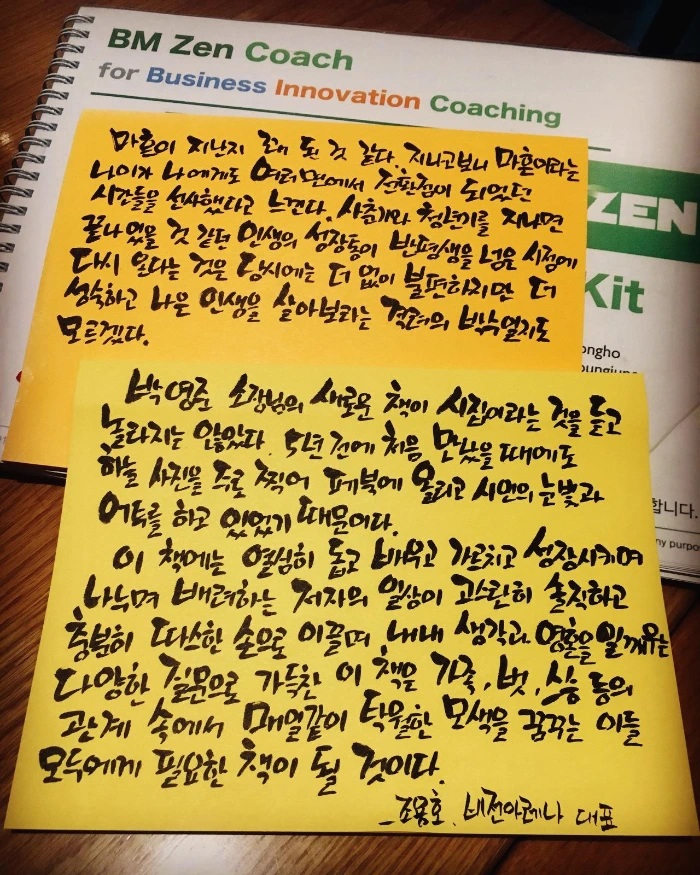 BM Zen Coach
for Business Innovation Coaching
ZEN
Kit
ongho
합니다.
ny purpo
마흔이 지난지 꽤 된 것 같다. 지나고보니 마흔이라는
나이가 나에게도 여러면에서 전환점이 되었던
시간들을 선사했다고 느낀다. 사춘기와 청년기를 지나면
끝나있을 것 같던 인생의 성장통이 반평생을 넘음 시점에
다시 온다는 것은 당시에는 더 없이 불편하지만 더
성숙하고 나은 인생을 살아보라는 격려의 박수일지도
모르겠다.
박영준 소장님의 새로운 책이 시집이라는 것을 듣고
놀라지는 않았다. 5년 전에 처음 만났을 때에도
하늘 사진을 주로 찍어 페북에 올리고 시인의 눈빛과
어투를 하고 있었기 때문이다.
이 책에는 열심히 돕고 배우고 가르치고 성장시키며
나누며 배려하는 저자의 일상이 고스란히 솔직하고
충분히 따스한 손으로 이끌며, 내내 생각과 영혼을 일깨우는
다양한 질문으로 가득찬 이 책은 가족, 벗, 스승 등의
관계 속에서 매일같이 탁월한 모색을 꿈꾸는 이들
모두에게 필요한 책이 될 것이다.
_조용호, 비전아레나 대표